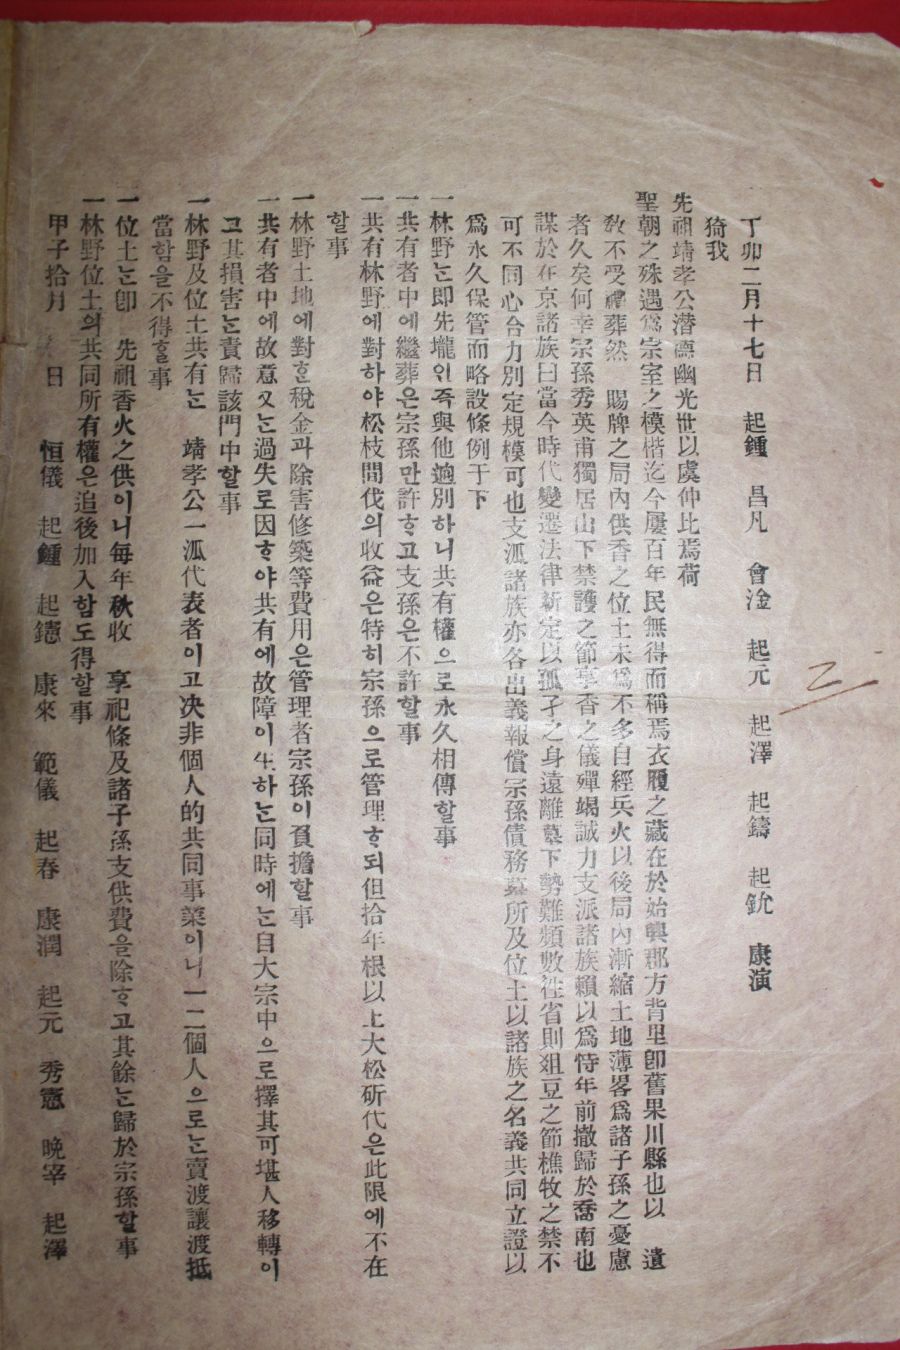 丁卯二月十七日　起鍾　昌凡　會淦　起元　起澤　起鑄　起銃　康演
猗我
先祖靖孝公潛德幽光世以虞仲比焉荷
聖朝之殊遇爲宗室之模楷迄今屢百年民無得而稱焉衣履之藏在於始興郡方背里卽舊果川縣也以　遺
敎不受禮葬然　賜牌之局內供香之位土未爲不多自經兵火以後局內漸縮土地薄畧爲諸子孫之憂慮
者久矣何幸宗孫秀英甫獨居山下禁護之節享香之儀殫竭誠力支派諸族賴以爲恃年前撤歸於喬南也
謀於在京諸族曰當今時代變遷法律新定以孤孑之身遠離墓下勢難頻數徃省則俎豆之節樵牧之禁不
可不同心合力別定規模可也支派諸族亦各出義報償宗孫債務墓所及位土以諸族之名義共同立證以
爲永久保管而略設條例于下
一林野는即先壠인즉與他逈別하니共有權으로永久相傳할事
一共有者中에繼葬은宗孫만許ᄒ고支孫은不許할事
一共有林野에對하야松枝間伐의收益은特히宗孫으로管理ᄒ되但拾年根以上大松斫伐은此限에不在
할事
一林野土地에對ᄒᆫ稅金과除害修築等費用은管理者宗孫이負擔할事
一共有者中에故意又는過失로因ᄒ야共有에故障이生하는同時에는自大宗中으로擇其可堪人移轉이
고其損害는責歸該門中할事
一林野及位土共有는　靖孝公一派代表者이고决非個人的共同事業이니一二個人으로는賣渡讓渡抵
當함을不得ᄒᆯ事
一位土는卽　先祖香火之供이니每年秋收　享祀條及諸子孫支供費을除ᄒ고其餘는歸於宗孫할事
一林野位土의共同所有權은追後加入할도得할事
甲子拾月　　日　　恒儀　起鍾　起鏸　康來　範儀　起春　康潤　起元　秀憲　晩宰　起澤